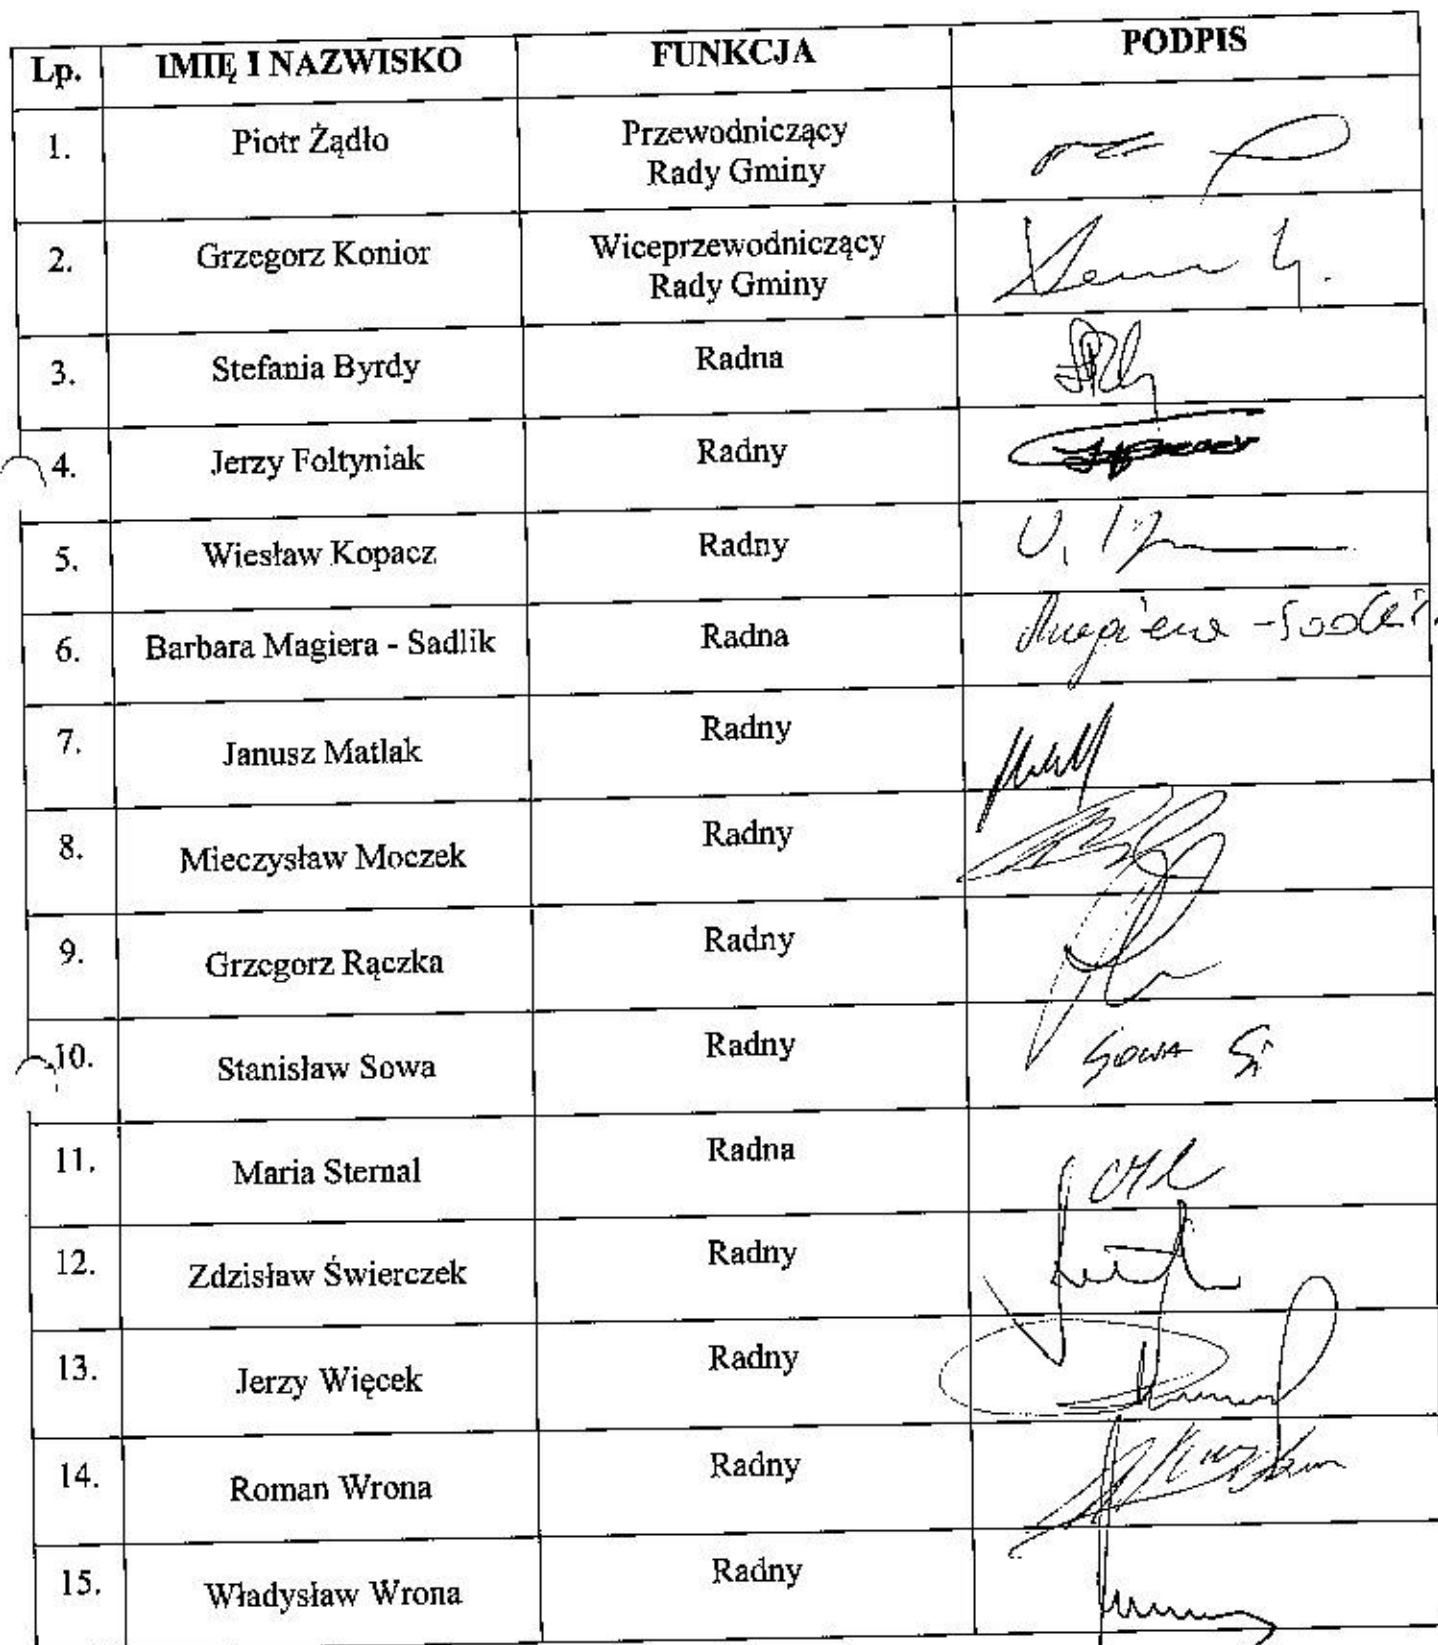 Lp. IMIĘ I NAZWISKO FUNKCJA PODPIS
1. Piotr Żądło Przewodniczący
Rady Gminy
2. Grzegorz Konior Wiceprzewodniczący
Rady Gminy
3. Stefania Byrdy Radna
4. Jerzy Foltyniak Radny
5. Wiesław Kopacz Radny
6. Barbara Magiera - Sadlik Radna
7. Janusz Matlak Radny
8. Mieczysław Moczek Radny
9. Grzegorz Rączka Radny
10. Stanisław Sowa Radny Sowa St
11. Maria Sternal Radna
12. Zdzisław Świerczek Radny
13. Jerzy Więcek Radny
14. Roman Wrona Radny
15. Władysław Wrona Radny